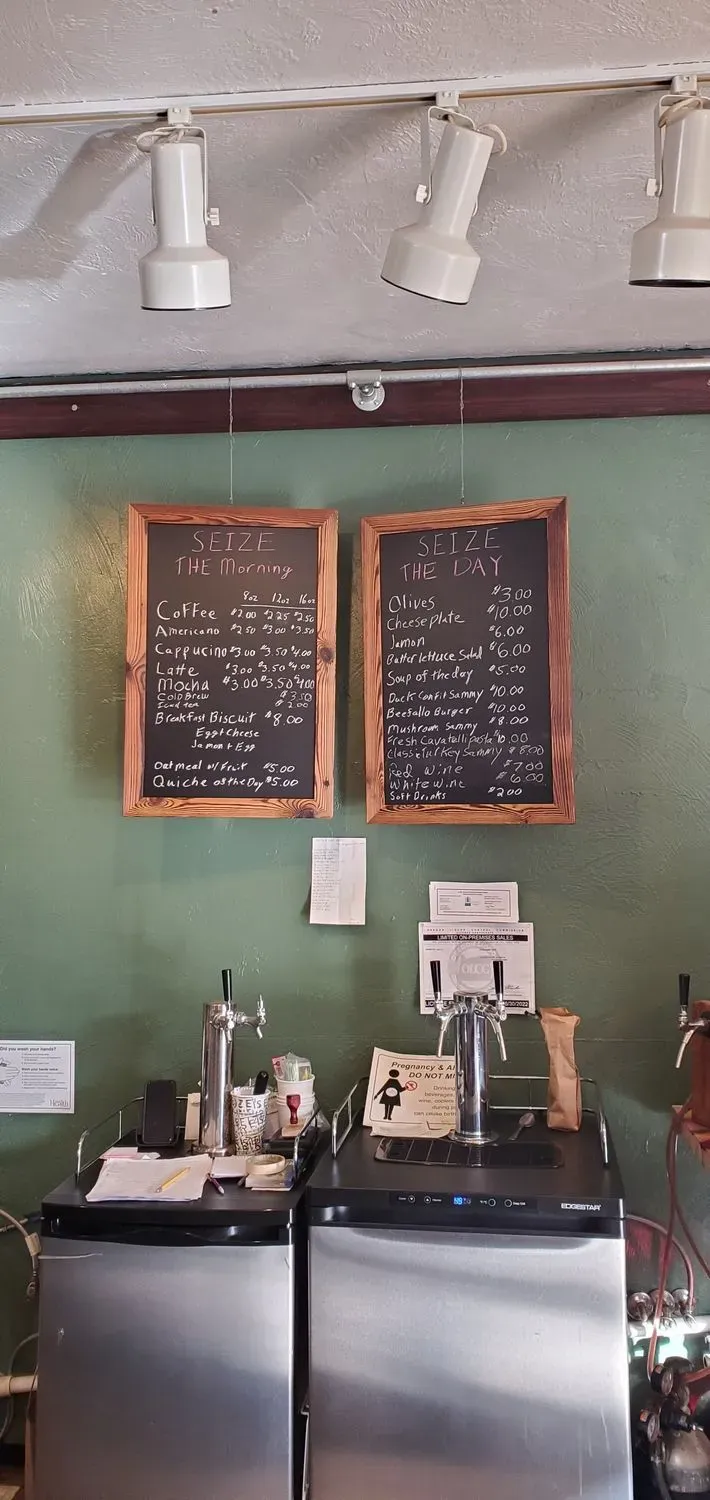 SEIZE
THE Morning
8oz 12oz 16oz
Coffee $2.00 $2.25 $2.50
Americano $2.50 $3.00 $3.50
Cappucino $3.00 $3.50 $4.00
Latte $3.00 $3.50 $4.00
Mocha $3.00 $3.50 $4.00
Cold Brew $3.50
Iced tea $2.00
Breakfast Biscuit $8.00
Egg + Cheese
Jamon + Egg
Oatmeal w/ Fruit $5.00
Quiche of the Day $5.00
SEIZE
THE DAY
Olives $3.00
Cheese plate $10.00
Jamon $6.00
Butter lettuce Salad $6.00
Soup of the day $5.00
Duck Confit Sammy $10.00
Beefallo Burger $10.00
Mushroom Sammy $8.00
Fresh Cavatelli pasta $10.00
Classic Turkey Sammy $8.00
Red wine $7.00
White wine $6.00
Soft Drinks $2.00
LIMITED ON-PREMISES SALES
OLCC
Did you wash your hands?
Wash your hands twice
Health
Pregnancy & A
DO NOT MI
Drinking
wine, coolers
during p
can cause birth
EDGESTAR